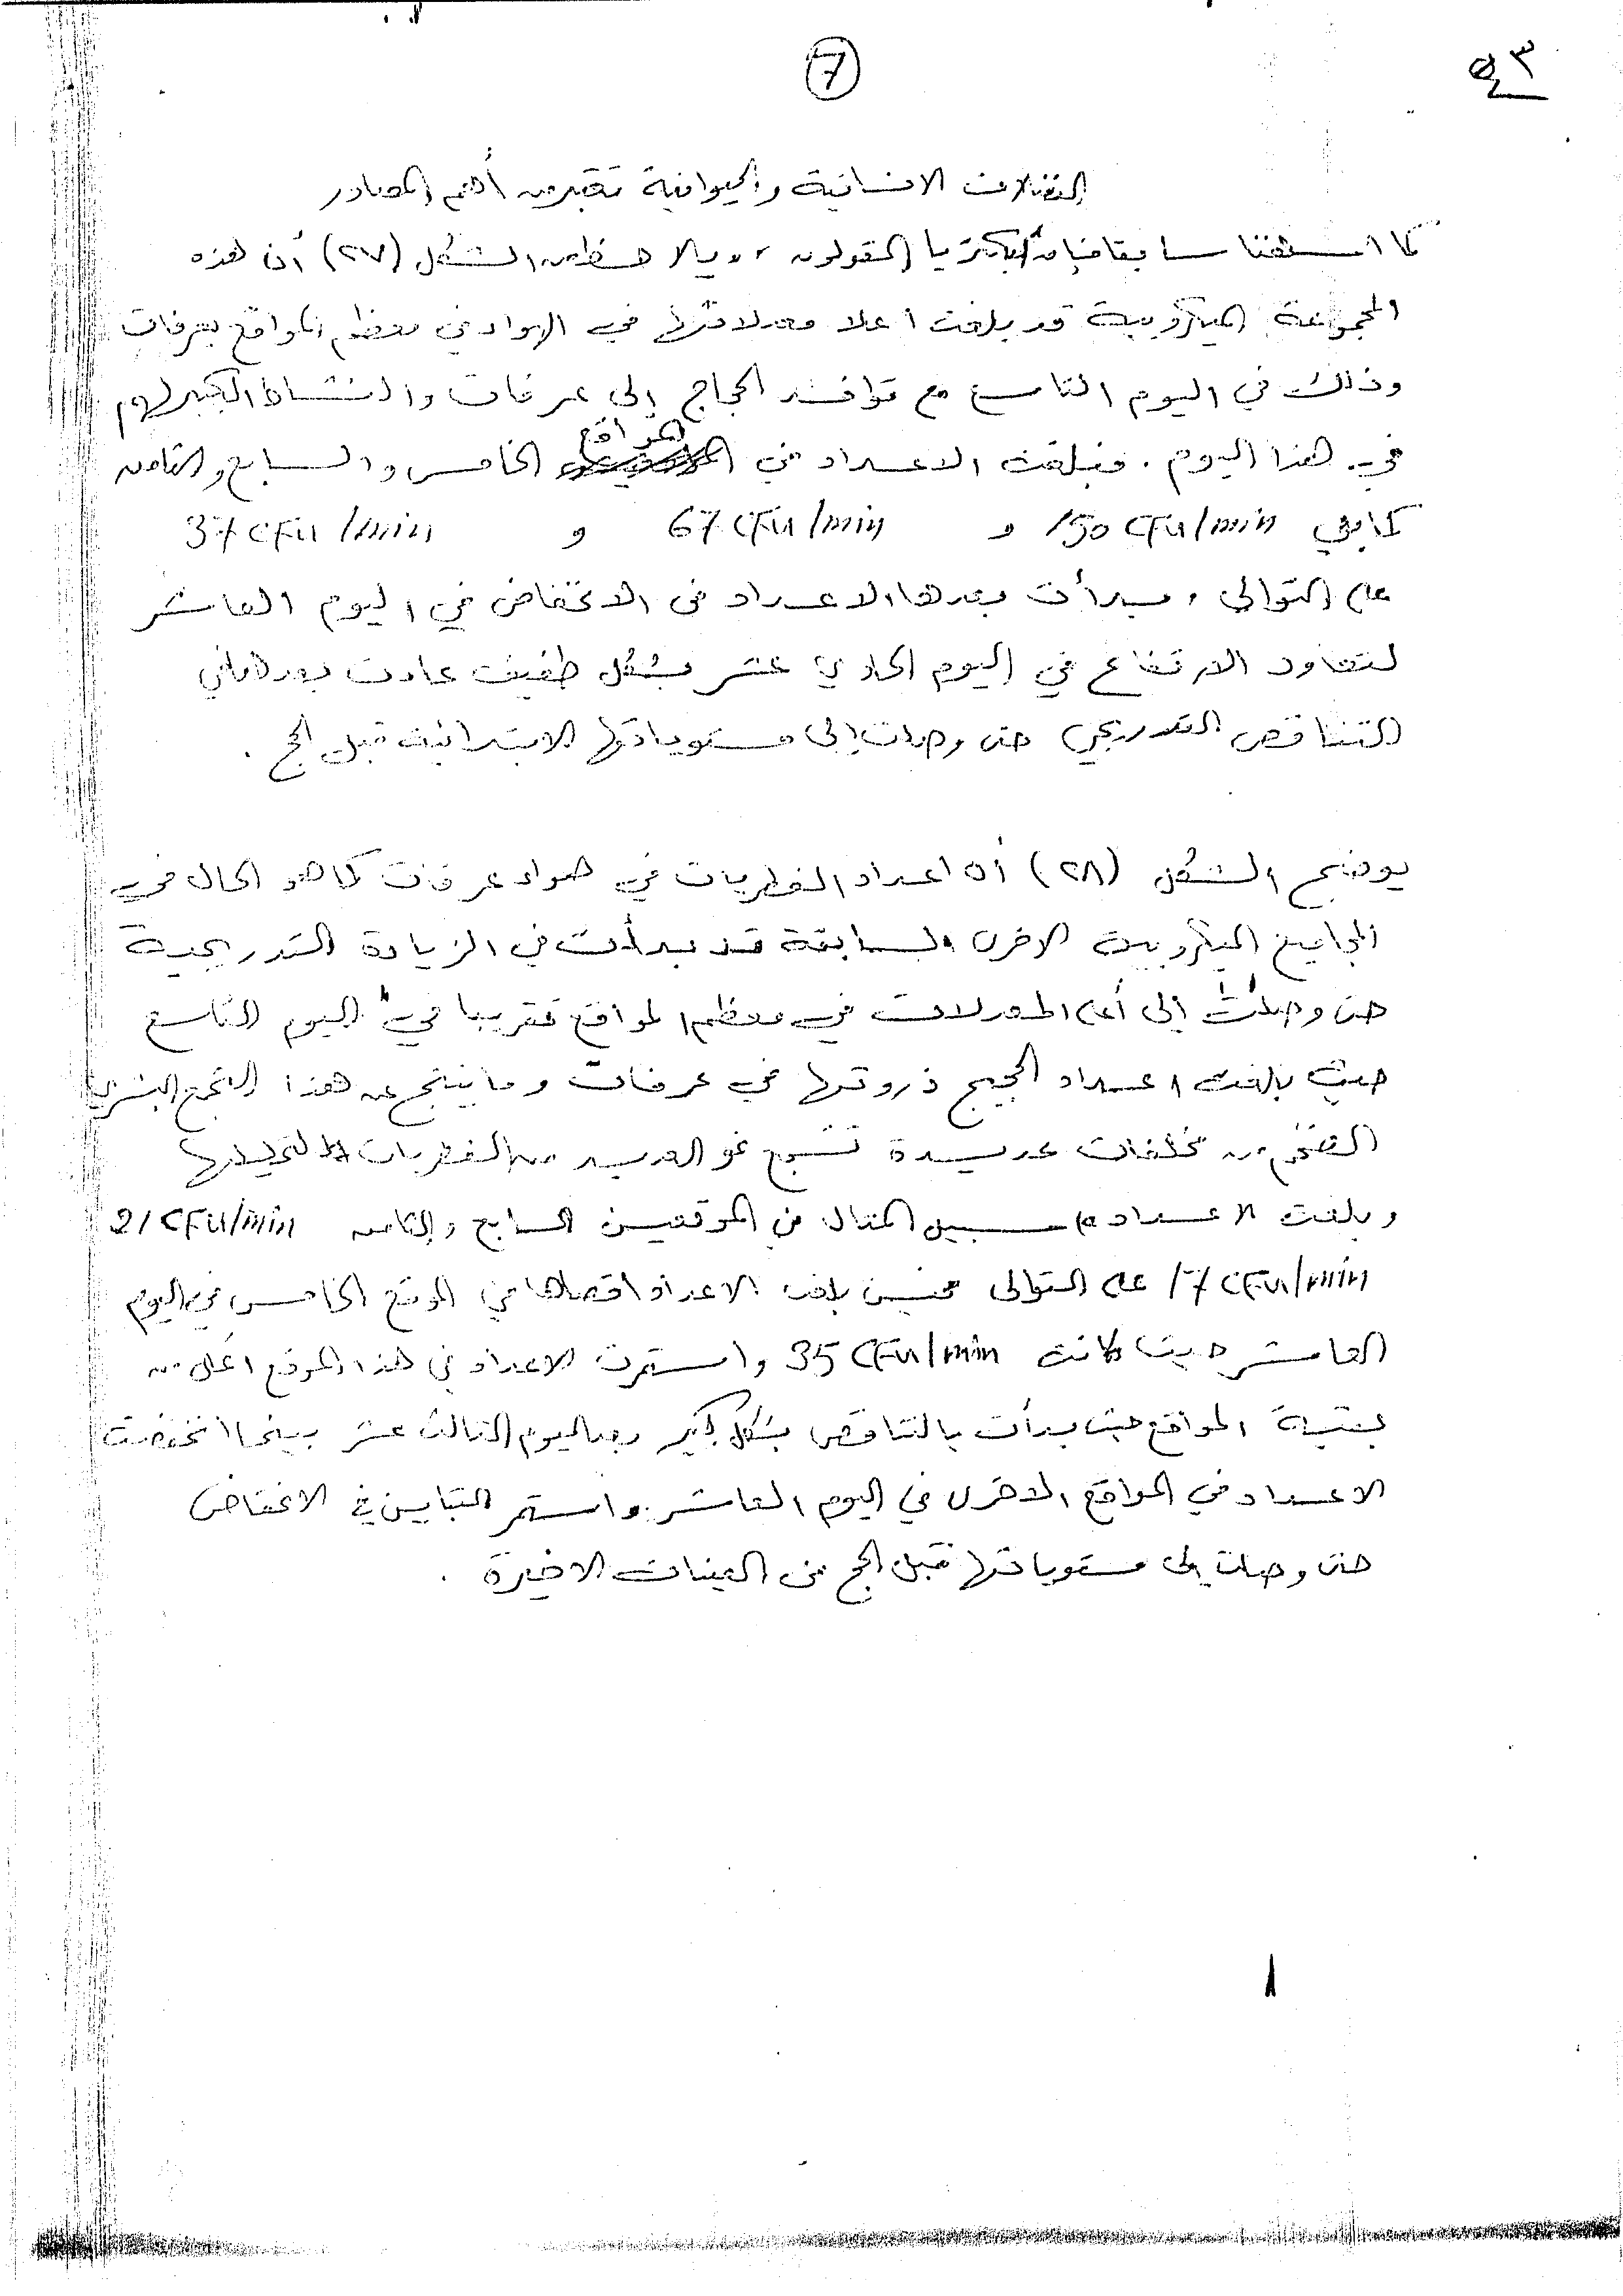 7
٩٣
الفضلات الانسانية والحيوانية تعتبر من أهم المصادر
كما اسلفنا سابقا لبكتريا القولون ، ويلاحظ من الشكل (٢٧) أن هذه
المجموعة الميكروبية قد بلغت أعلا معدلاتها في الهواء في معظم المواقع بعرفات
وذلك في اليوم التاسع مع توافد الحجاج إلى عرفات والنشاط الكبير لهم
في هذا اليوم . فبلغت الاعداد في المواقع الخامس والسابع والثامن
كما يلي 150 CFU/min و 67 CFU/min و 37 CFU/min
على التوالي ، وبدأت بعدها الاعداد في الانخفاض في اليوم العاشر
لتعاود الارتفاع في اليوم الحادي عشر بشكل طفيف عادت بعدها في
التناقص التدريجي حتى وصلت إلى مستوياتها الابتدائية قبل الحج .
يوضح الشكل (٢٨) أن اعداد الفطريات في هواء عرفات كما هو الحال في
المجاميع الميكروبية الاخرى السابقة قد بدأت في الزيادة التدريجية
حتى وصلت إلى أعلى المعدلات في معظم المواقع تقريبا في اليوم التاسع
حيث بلغت اعداد الحجيج ذروتها في عرفات وما ينتج عن هذا التجمع البشري
الضخم من مخلفات عديدة تشجع نمو العديد من الفطريات لتحليلها
وبلغت الاعداد على سبيل المثال في الموقعين السابع والثامن 21 CFU/min
17 CFU/min على التوالى في حين بلغت الاعداد اقصاها في الموقع الخامس في اليوم
العاشر حيث كانت 35 CFU/min واستمرت الاعداد في هذا الموقع أعلى من
بقية المواقع حيث بدأت بالتناقص بشكل كبير بعد اليوم الثالث عشر بينما انخفضت
الاعداد في المواقع الاخرى في اليوم العاشر واستمر التباين في الانخفاض
حتى وصلت إلى مستوياتها قبل الحج في العينات الاخيرة .